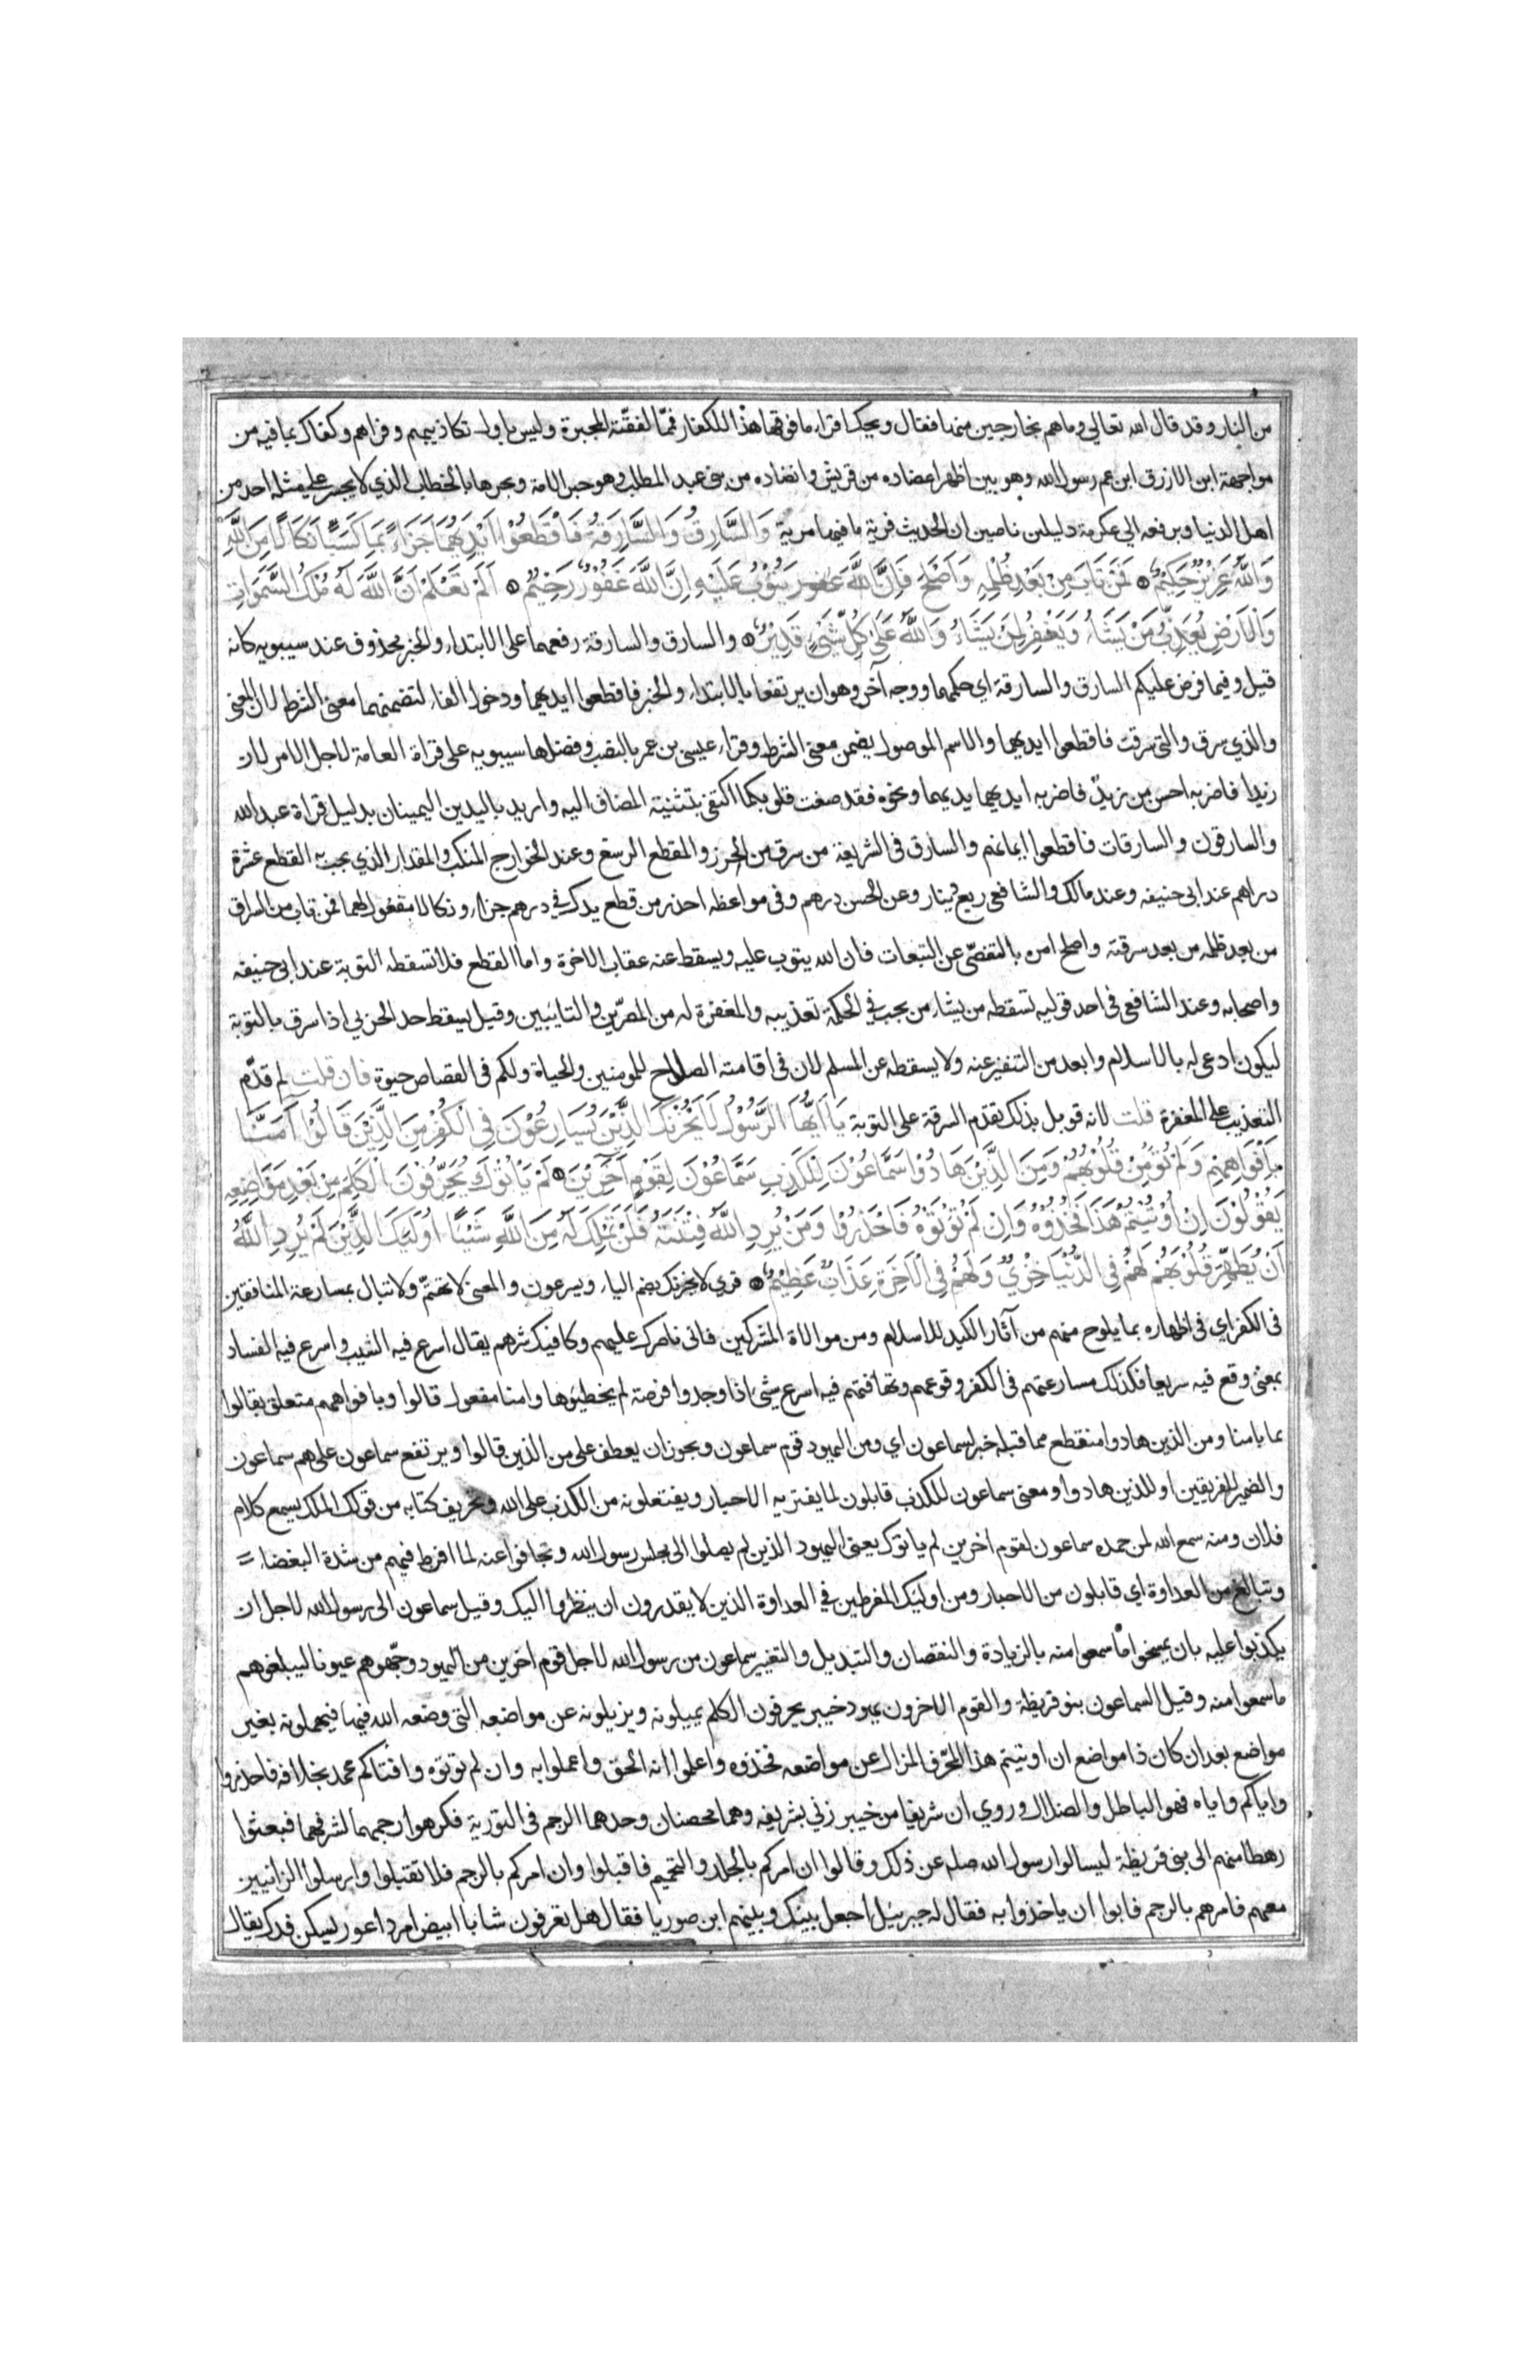 من النار وقد قال الله تعالي وما هم بخارجين منها فقال ويحك اقراء ما فوقها هذا للكفار فمما لفقته المجبرة وليس باول تكاذيبهم وفراهم وكفاك بما فيه من
مواجهة ابن الازرق ابن عم رسول الله وهو بين اظهر اعضاده من قريش وانضاده من بني عبد المطلب وهو حبر الامة وبحرها بالخطاب الذي لا يجسر علي مثله احد من
اهل الدنيا وبرفعه الي عكرمة دليلين ناصين ان الحديث فرية ما فيها مرية وَالسَّارِقُ وَالسَّارِقَةُ فَاقْطَعُوْا اَيْدِيَهُمَا جَزَاءً بِمَا كَسَبَا نَكَالًا مِنَ اللَّهِ
وَاللَّهُ عَزِيْزٌ حَكِيْمٌ فَمَنْ تَابَ مِنْ بَعْدِ ظُلْمِهِ وَاَصْلَحَ فَاِنَّ اللَّهَ يَتُوْبُ عَلَيْهِ اِنَّ اللَّهَ غَفُوْرٌ رَحِيْمٌ اَلَمْ تَعْلَمْ اَنَّ اللَّهَ لَهُ مُلْكُ السَّمَوَاتِ
وَالْاَرْضِ يُعَذِّبُ مَنْ يَشَاءُ وَيَغْفِرُ لِمَنْ يَشَاءُ وَاللَّهُ عَلَى كُلِّ شَيْءٍ قَدِيْرٌ والسارق والسارقة رفعهما على الابتداء والخبر محذوف عند سيبويه كانه
قيل وفيما فرض عليكم السارق والسارقة اي حكمهما ووجه آخر وهو ان يرتفعا بالابتداء والخبر فاقطعوا ايديهما ودخول الفاء لتضمنهما معنى الشرط لان المعنى
والذي سرق والتى سرقت فاقطعوا ايديهما والاسم الموصول يضمن معنى الشرط وقراء عيسى بن عمر بالنصب وفضلها سيبويه على قراة العامة لاجل الامر لان
زيدا فاضربه احسن من زيدٌ فاضربه ايديهما يديهما ونحوه فقد صغت قلوبكما اكتفى بتثنية المضاف اليه واريد باليدين اليمينان بدليل قراة عبد الله
والسارقون والسارقات فاقطعوا ايمانهم والسارق فى الشريعة من سرق من الحرز والمقطع الرسغ وعند الخوارج المنكب والمقدار الذي يجب به القطع عشرة
دراهم عند ابى حنيفه وعند مالك والشافعي ربع دينار وعن الحسن درهم وفى مواعظه احذر من قطع يدك في درهم جزاء ونكالا مفعول لهما فمن تاب من السراق
من بعد ظلمه من بعد سرقته واصلح امره بالتفصّي عن التبعات فان الله يتوب عليه ويسقط عنه عقاب الاخرة واما القطع فلا تسقطه التوبة عند ابى حنيفه
واصحابه وعند الشافعي فى احد قوليه تسقطه من يشاء من يجب في الحكمة تعذيبه والمغفرة له من المصرّين والتايبين وقيل يسقط حد الحربي اذا سرق بالتوبة
ليكون ادعى له بالاسلام وابعد من التنفير عنه ولا يسقطه عن المسلم لان فى اقامته الصلاح للمومنين والحياة ولكم فى القصاص حيوة فان قلت لم قدّم
التعذيب على المغفرة قلت لانه قوبل بذلك تقدم السرقة على التوبة يَا اَيُّهَا الرَّسُوْلُ لَا يَحْزُنْكَ الَّذِيْنَ يُسَارِعُوْنَ فِي الْكُفْرِ مِنَ الَّذِيْنَ قَالُوْا آمَنَّا
بِاَفْوَاهِهِمْ وَلَمْ تُؤْمِنْ قُلُوْبُهُمْ وَمِنَ الَّذِيْنَ هَادُوْا سَمَّاعُوْنَ لِلْكَذِبِ سَمَّاعُوْنَ لِقَوْمٍ آخَرِيْنَ لَمْ يَاْتُوْكَ يُحَرِّفُوْنَ الْكَلِمَ مِنْ بَعْدِ مَوَاضِعِهِ
يَقُوْلُوْنَ اِنْ اُوْتِيْتُمْ هَذَا فَخُذُوْهُ وَاِنْ لَمْ تُؤْتَوْهُ فَاحْذَرُوْا وَمَنْ يُرِدِ اللَّهُ فِتْنَتَهُ فَلَنْ تَمْلِكَ لَهُ مِنَ اللَّهِ شَيْئًا اُوْلَئِكَ الَّذِيْنَ لَمْ يُرِدِ اللَّهُ
اَنْ يُطَهِّرَ قُلُوْبَهُمْ لَهُمْ فِي الدُّنْيَا خِزْيٌ وَلَهُمْ فِي الْآخِرَةِ عَذَابٌ عَظِيْمٌ قري لا يحزنك بضم الياء ويسرعون والمعنى لا تهتمّ ولا تبال بمسارعة المنافقين
فى الكفر اي فى اظهاره بما يلوح منهم من آثار الكيد للاسلام ومن موالاة المشركين فانى ناصرك عليهم وكافيك شرهم يقال اسرع فيه الشيب واسرع فيه الفساد
بمعنى وقع فيه سريعا فكذلك مسارعتهم فى الكفر وقوعهم وتهافتهم فيه اسرع شئ اذا وجدوا فرصة لم يخطيوها وامنا مفعول قالوا وبافواههم متعلق بقالوا
بما بامنا ومن الذين هادوا منقطع مما قبله خبر لسماعون اي ومن اليهود قوم سماعون ويجوز ان يعطف على من الذين قالوا ويرتفع سماعون على هم سماعون
والضمير للفريقين او للذين هادوا ومعنى سماعون للكذب قابلون لما يفتريه الاحبار ويفتعلونه من الكذب على الله وتحريف كتابه من قولك الملك يسمع كلام
فلان ومنه سمع الله لمن حمده سماعون لقوم اخرين لم ياتوك يعنى اليهود الذين لم يصلوا الى مجلس رسول الله وتجافوا عنه لما افرط فيهم من شدة البغضاء
وتبالغ من العداوة اي قابلون من الاحبار ومن اوليك المفرطين في العداوة الذين لا يقدرون ان ينظروا اليك وقيل سماعون الى رسول الله لاجل ان
يكذبوا عليه بان يمسخوا ما سمعوا منه بالزيادة والنقصان والتبديل والتغيير سماعون من رسول الله لاجل قوم اخرين من اليهود وجّهوهم عيونا ليبلغوهم
ما سمعوا منه وقيل السماعون بنو قريظة والقوم الاخرون يهود خيبر يحرفون الكلم يميلونه ويزيلونه عن مواضعه التى وضعه الله فيها فيهملونه بغير
مواضع بعد ان كان ذا مواضع ان اوتيتم هذا المحرّف المزال عن مواضعه فخذوه واعلموا انه الحق واعملوا به وان لم توتوه وافتاكم محمد بخلافه فاحذروا
واياكم واياه فهو الباطل والضلال وروي ان شريفا من خيبر زني بشريفه وهما محصنان وحدهما الرجم فى التورية فكرهوا رجمهما لشرفهما فبعثوا
رهطا منهم الى بنى قريظة ليسالوا رسول الله صلعم عن ذلك وقالوا ان امركم بالجلد والتحميم فاقبلوا وان امركم بالرجم فلا تقبلوا وارسلوا الزانيين
معهم فامرهم بالرجم فابوا ان ياخذوا به فقال له جبرئيل اجعل بينك وبينهم ابن صوريا فقال هل تعرفون شابا ابيض امرد اعور يسكن فدك يقال